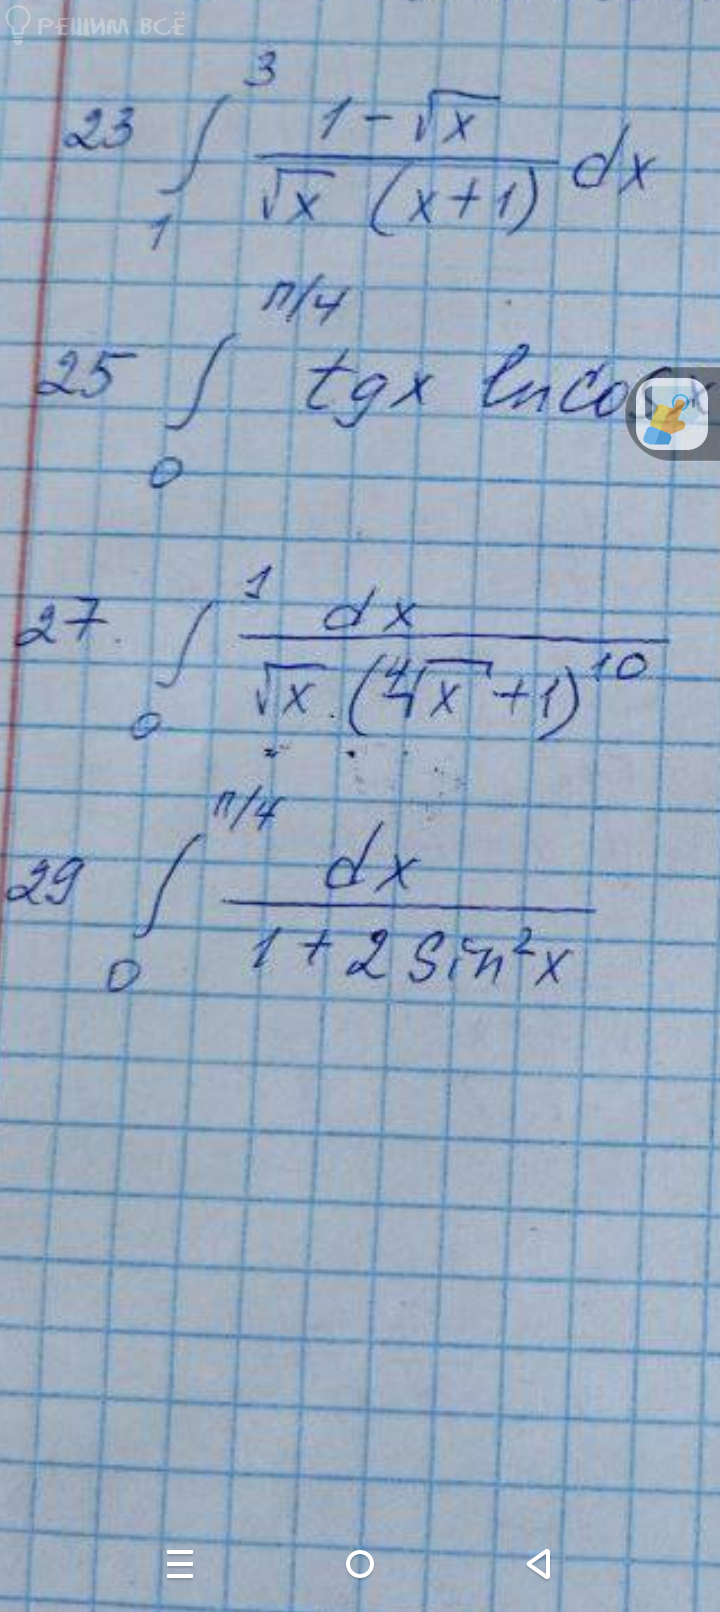 РЕШИМ ВСЁ
23 ∫₁³ (1-√x)/(√x (x+1)) dx
25 ∫₀^(π/4) tgx ln cos x
27. ∫₀¹ dx/(√x · (⁴√x + 1)¹⁰)
29 ∫₀^(π/4) dx/(1 + 2 Sin²x)